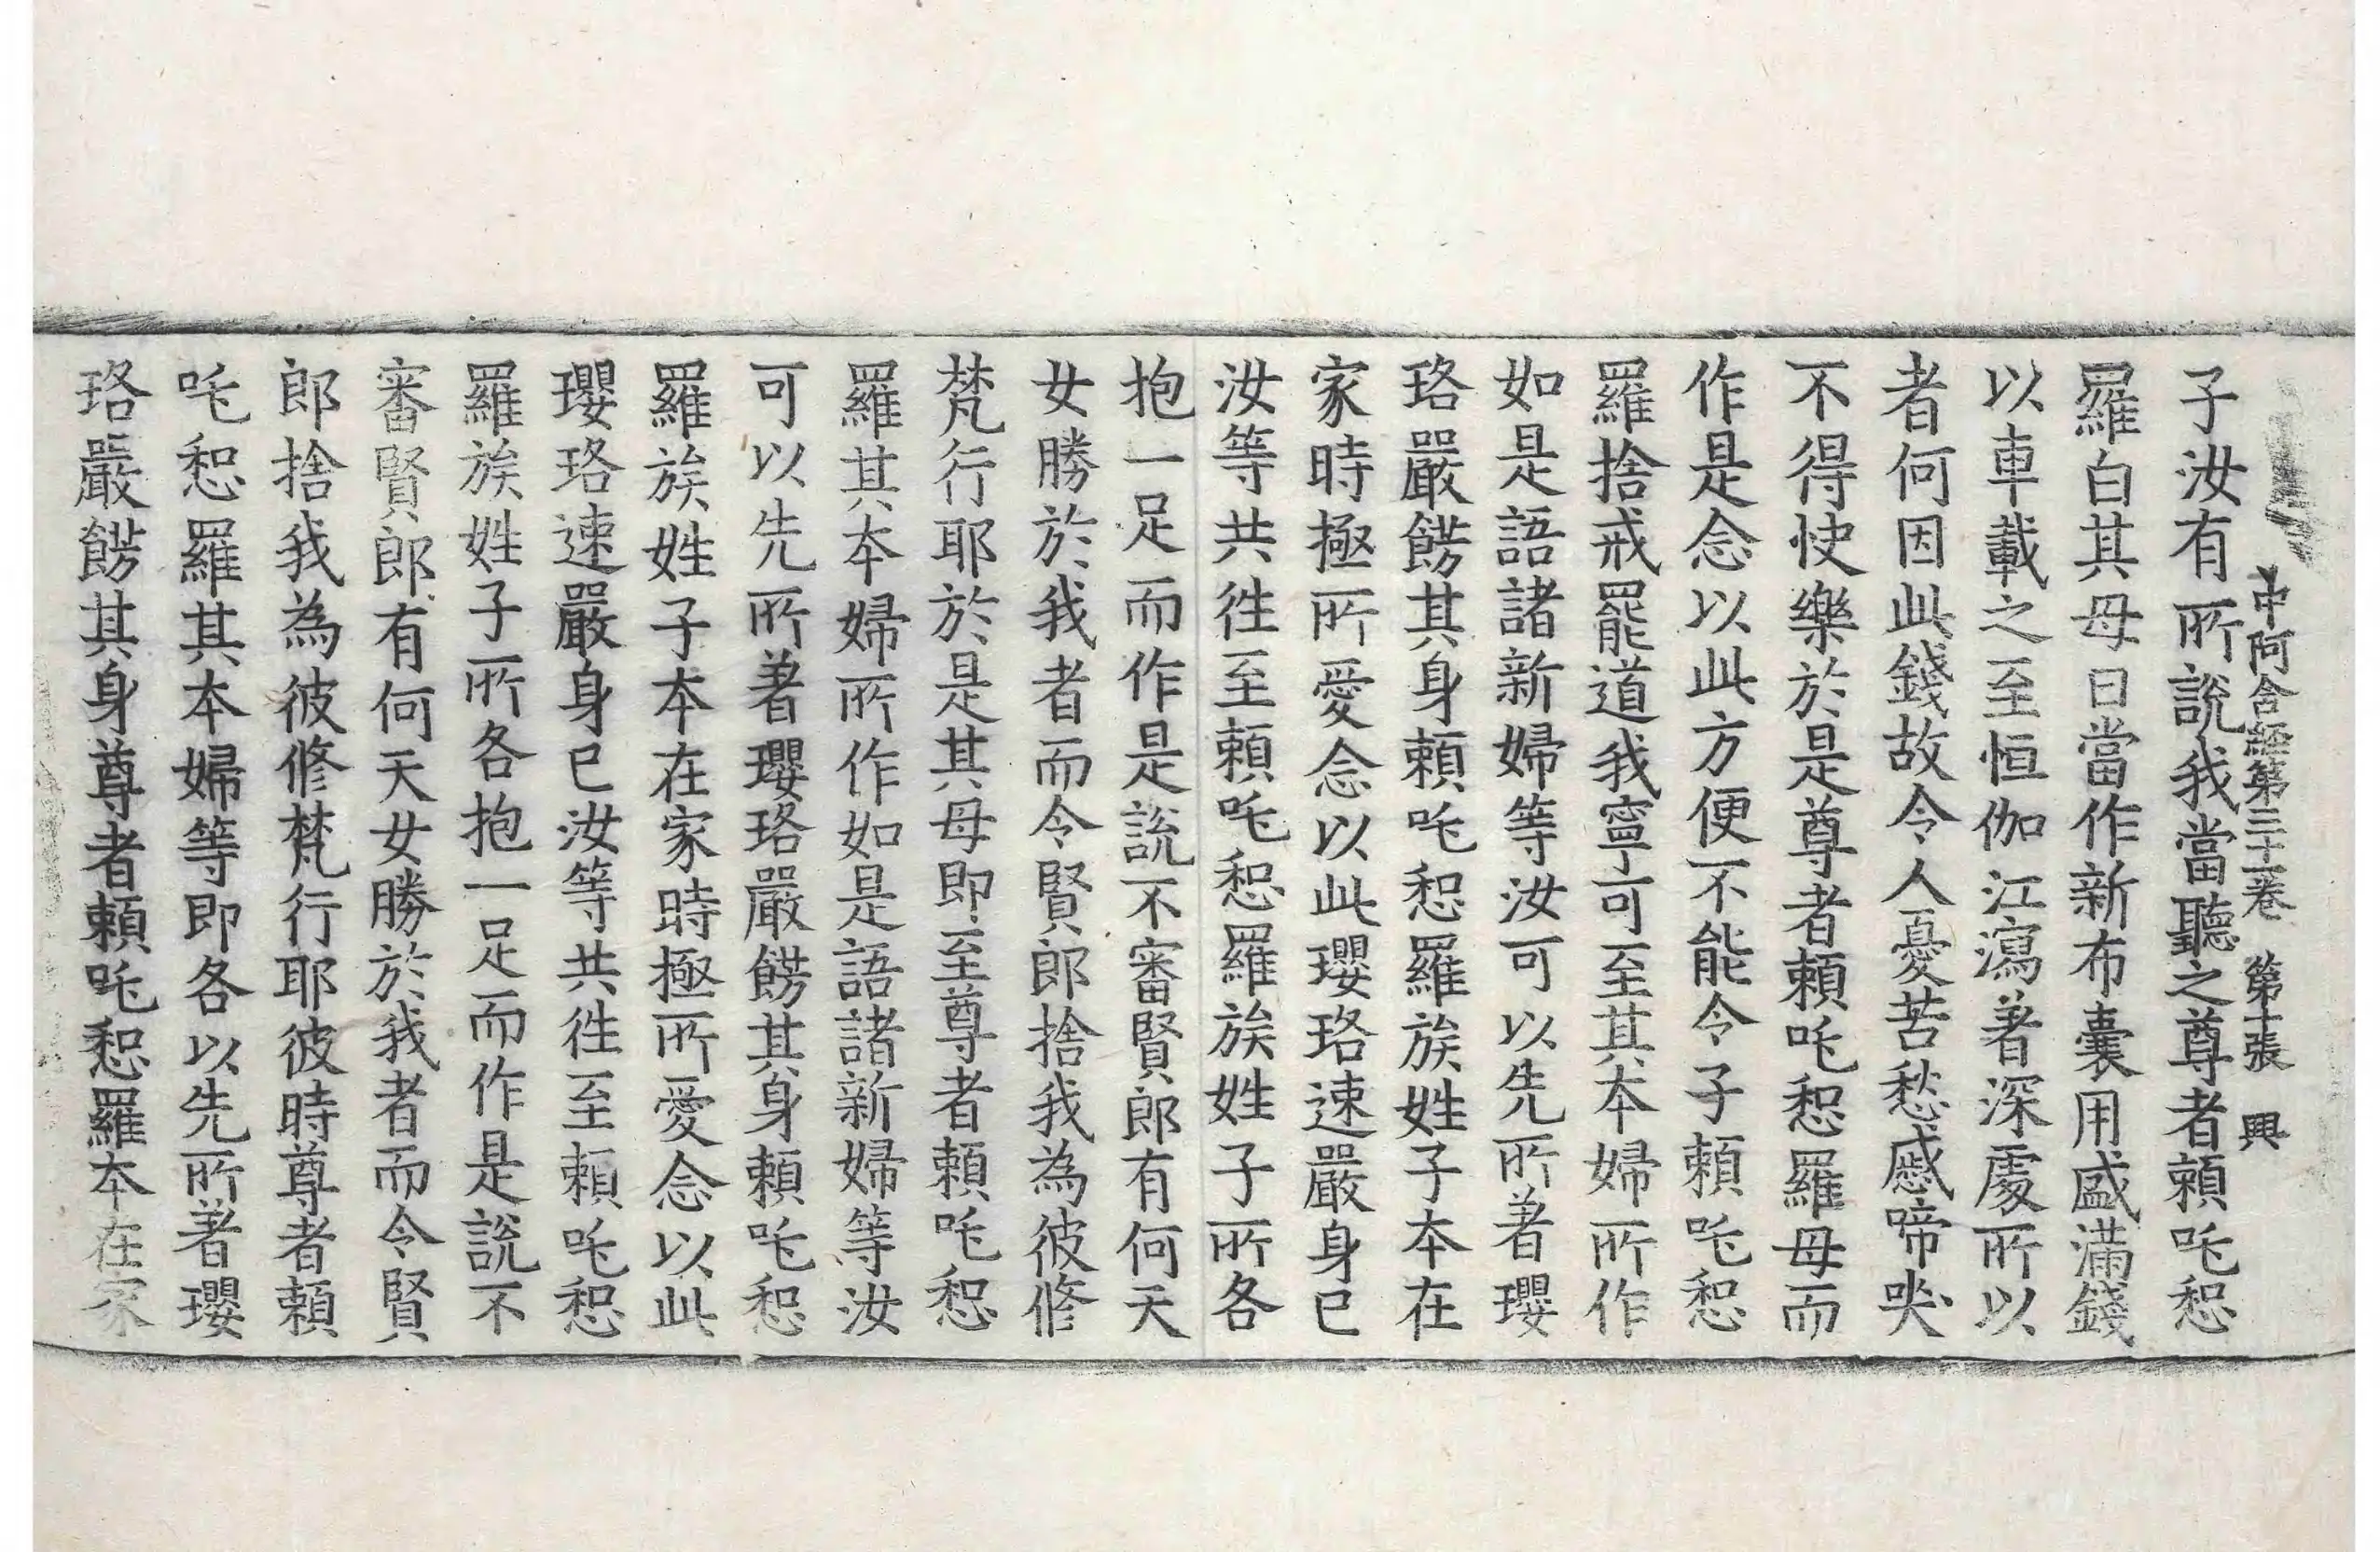 中阿含經第三十一卷 第十張 興
子汝有所說我當聽之尊者賴吒惒
羅白其母曰當作新布囊用盛滿錢
以車載之至恒伽江瀉著深處所以
者何因此錢故令人憂苦愁慼啼哭
不得快樂於是尊者賴吒惒羅母而
作是念以此方便不能令子賴吒惒
羅捨戒罷道我寧可至其本婦所作
如是語諸新婦等汝可以先所著瓔
珞嚴餝其身賴吒惒羅族姓子本在
家時極所愛念以此瓔珞速嚴身已
汝等共往至賴吒惒羅族姓子所各
抱一足而作是說不審賢郎有何天
女勝於我者而令賢郎捨我為彼修
梵行耶於是其母即至尊者賴吒惒
羅其本婦所作如是語諸新婦等汝
可以先所著瓔珞嚴餝其身賴吒惒
羅族姓子本在家時極所愛念以此
瓔珞速嚴身已汝等共往至賴吒惒
羅族姓子所各抱一足而作是說不
審賢郎有何天女勝於我者而令賢
郎捨我為彼修梵行耶彼時尊者賴
吒惒羅其本婦等即各以先所著瓔
珞嚴餝其身尊者賴吒惒羅本在家